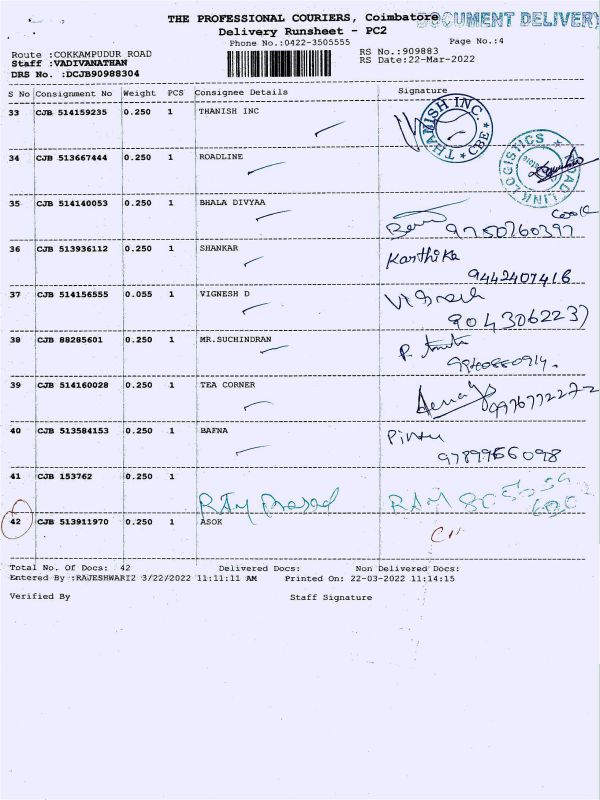 THE PROFESSIONAL COURIERS, Coimbatore DOCUMENT DELIVERY
Delivery Runsheet - PC2
Phone No.:0422-3505555 Page No.:4
Route :COKKAMPUDUR ROAD RS No.:909883
Staff :VADIVANATHAN RS Date:22-Mar-2022
DRS No. :DCJB90988304
S No Consignment No Weight PCS Consignee Details Signature
33 CJB 514159235 0.250 1 THANISH INC
THANISH INC. CBE
34 CJB 513667444 0.250 1 ROADLINE
ROAD LINK LOGISTICS
35 CJB 514140053 0.250 1 BHALA DIVYAA
9750760397
36 CJB 513936112 0.250 1 SHANKAR Karthika
9442407416
37 CJB 514156555 0.055 1 VIGNESH D
9043062237
38 CJB 88285601 0.250 1 MR.SUCHINDRAN
39 CJB 514160028 0.250 1 TEA CORNER
9976772272
40 CJB 513584153 0.250 1 BAFNA
9789966098
41 CJB 153762 0.250 1
RAM Prasad RAM
42 CJB 513911970 0.250 1 ASOK
Total No. Of Docs: 42 Delivered Docs: Non Delivered Docs:
Entered By :RAJESHWARI2 3/22/2022 11:11:11 AM Printed On: 22-03-2022 11:14:15
Verified By Staff Signature